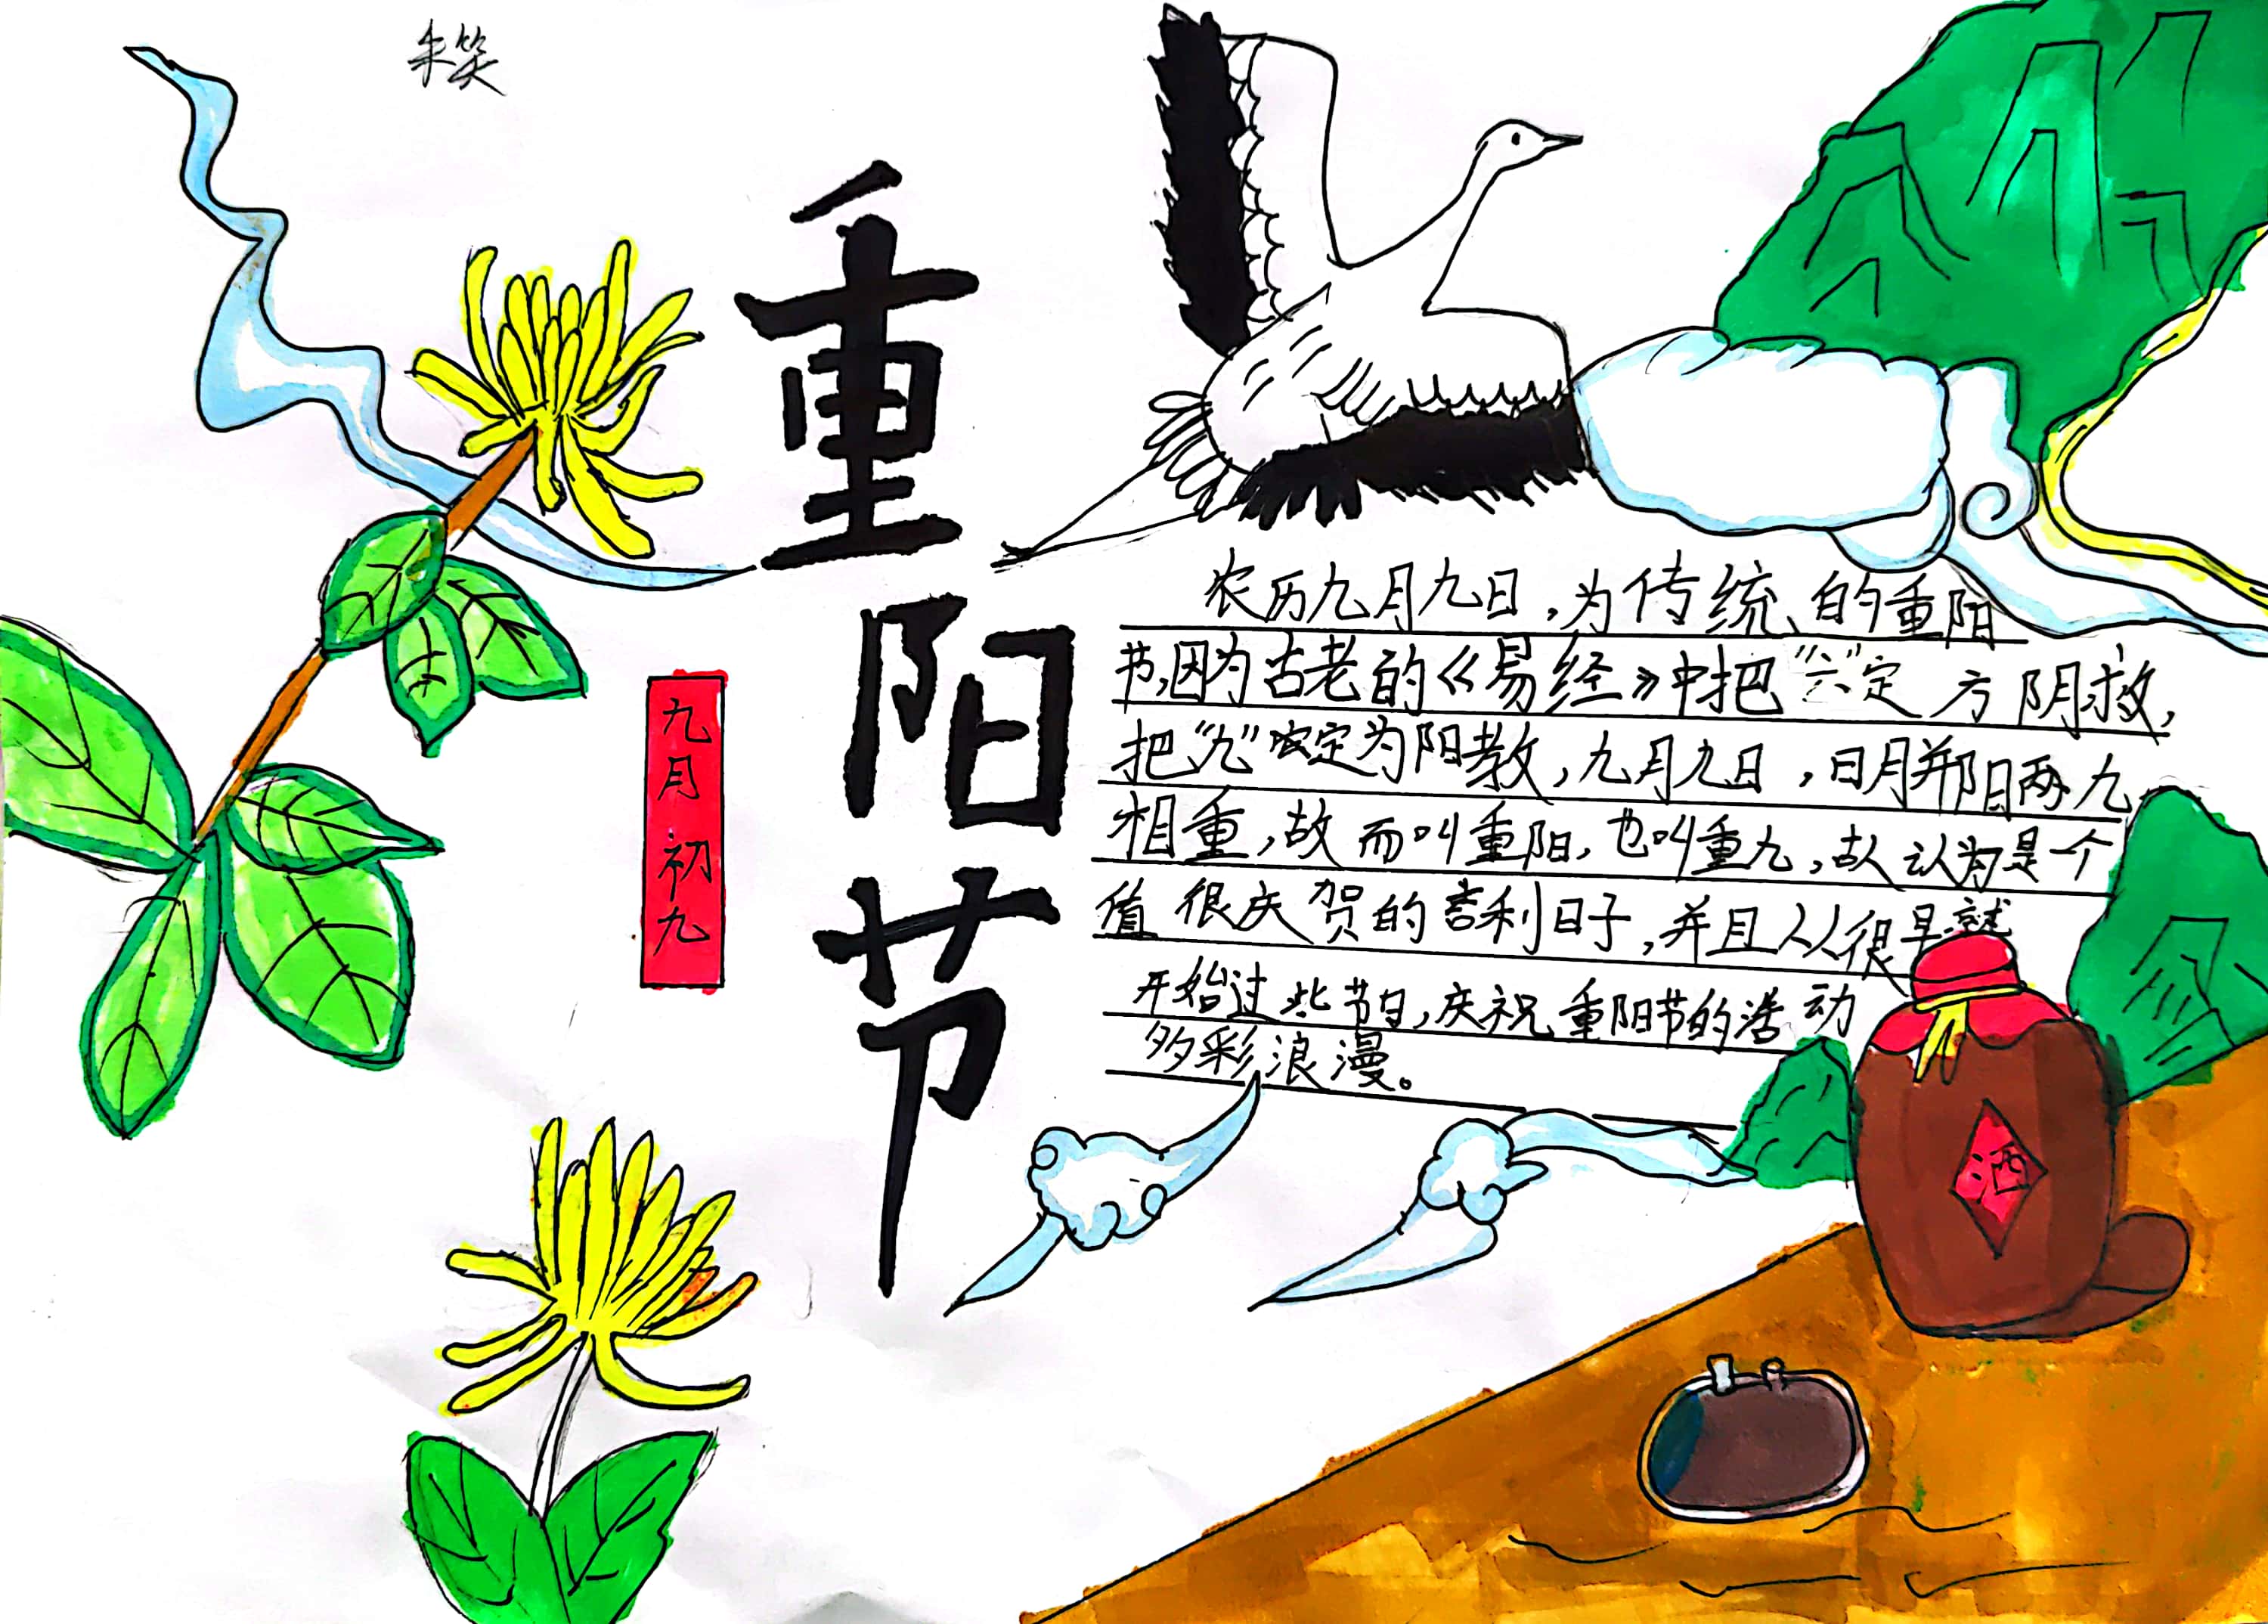 朱笑
重阳节
九月初九
农历九月九日,为传统的重阳
节,因为古老的《易经》中把“六”定方阴救,
把“九”定为阳教,九月九日,日月并阳两九
相重,故而叫重阳,也叫重九,故人认为是个
值很庆贺的吉利日子,并且人从很早就
开始过此节日,庆祝重阳节的活动
多彩浪漫。
酒